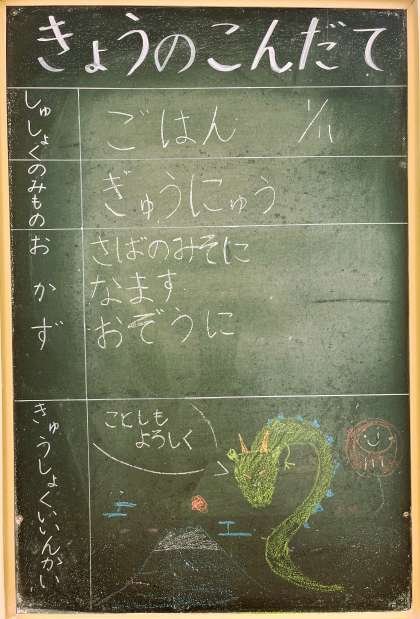 きょうのこんだて
しゅしょく
ごはん
1/11
のみもの
ぎゅうにゅう
おかず
さばのみそに
なます
おぞうに
きゅうしょくいいんかい
ことしも
よろしく